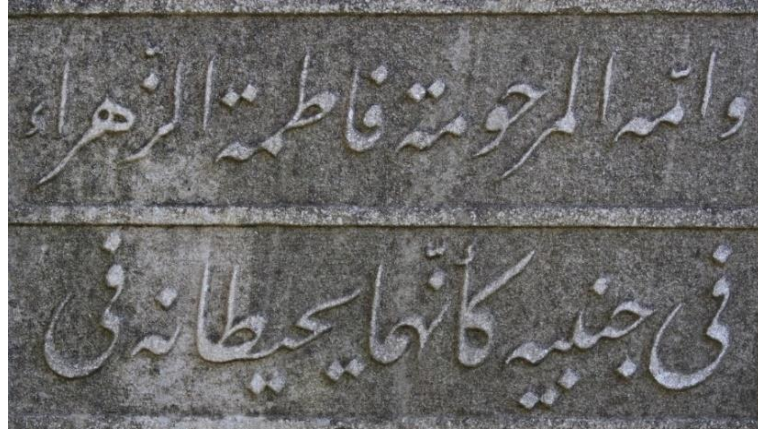 وامّه المرحومة فاطمة الزهراء
فى جنبيه كأنّهما يحيطانه فى